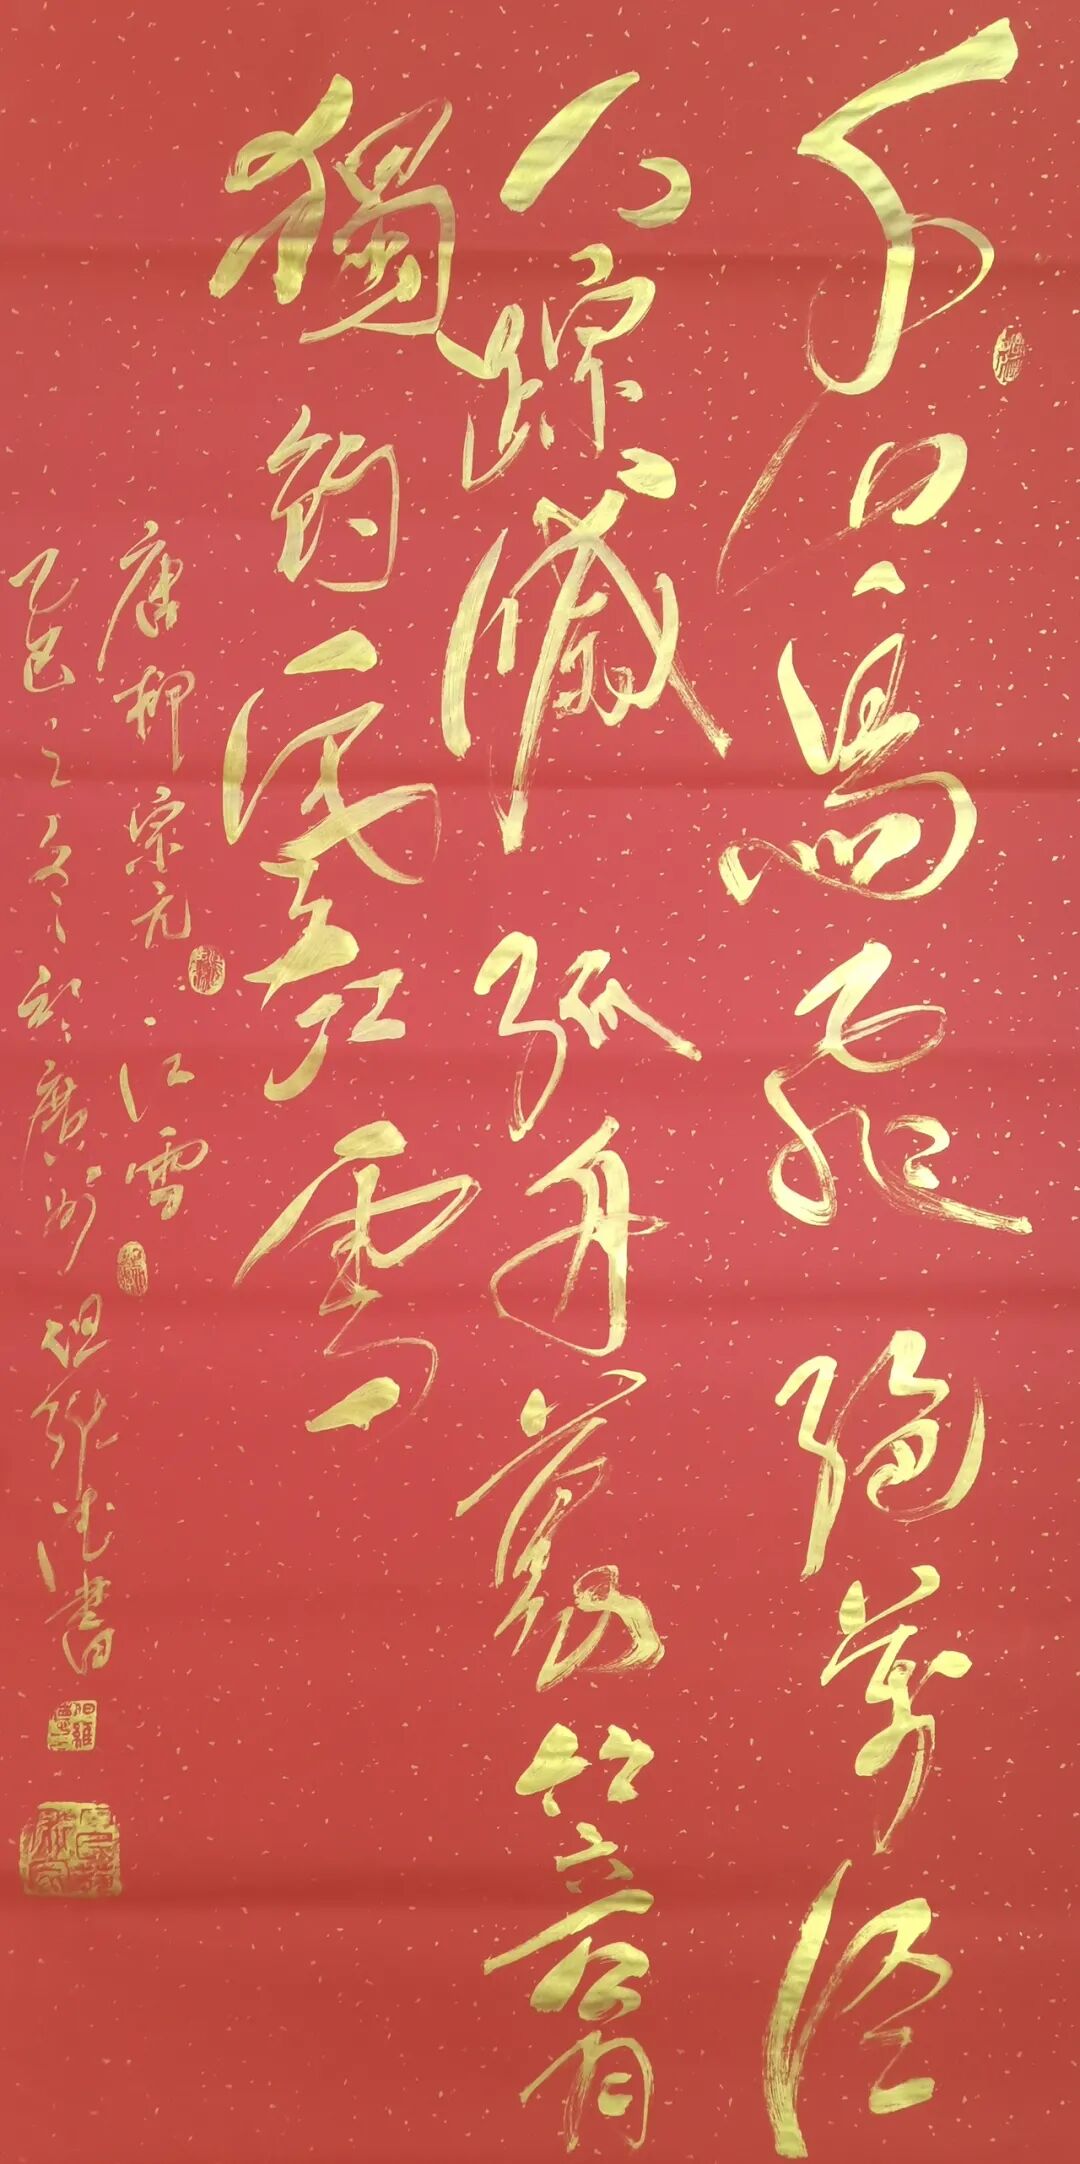 千山鳥飛絕萬徑
人踪滅孤舟蓑笠翁
獨釣寒江雪
唐柳宗元江雪
乙巳之冬於廣州書